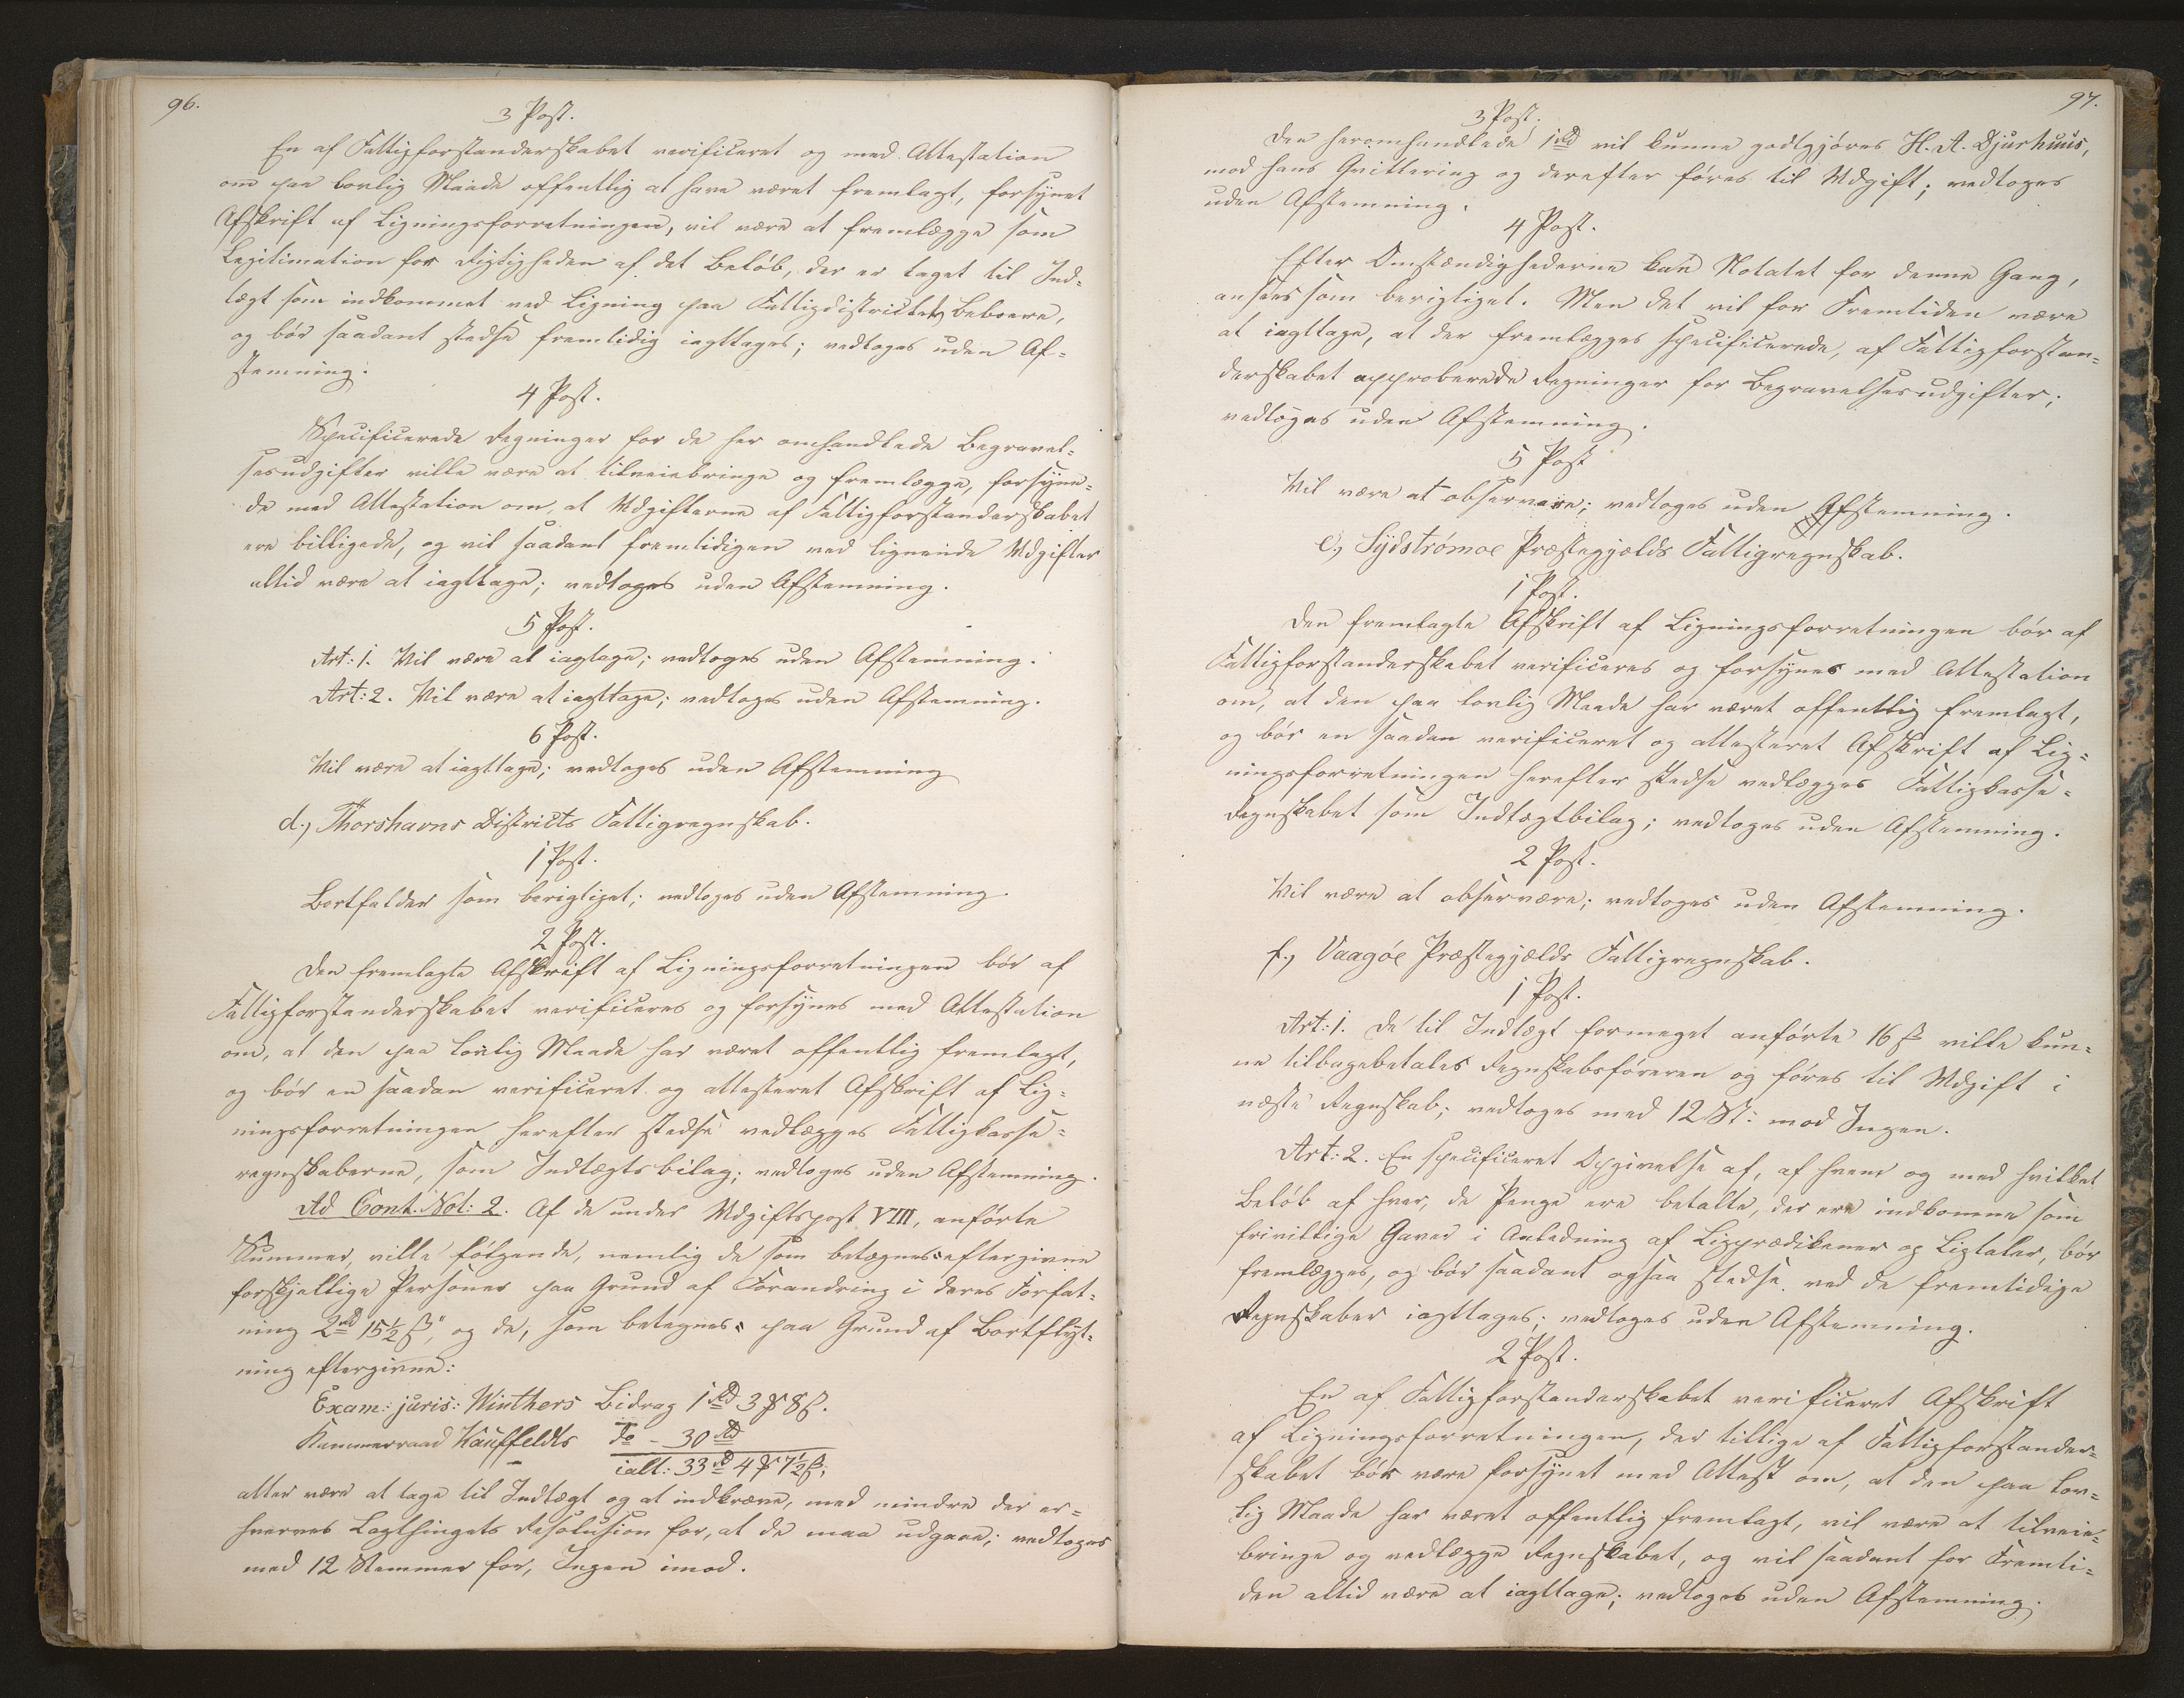 96.
3 Post.
En af Fattigforstanderskabet verificeret og med Attestation
om paa lovlig Maade offentlig at have været fremlagt, forsynet
Afskrift af Ligningsforretningen, vil være at fremlægge som
Legitimation for Rigtigheden af det Beløb, der er taget til Ind-
tægt som indkommet ved Ligning paa Fattigdistrictets Beboere,
og bør saadant stedse fremtidig iagttages; vedtoges uden Af-
stemning.
4 Post.
Specificerede Regninger for de her omhandlede Begravel-
sesudgifter ville være at tilveiebringe og fremlægge, forsyne-
de med Attestation om, at Udgifterne af Fattigforstanderskabet
ere billigede, og vil saadant fremtidigen ved lignende Udgifter
altid være at iagttage; vedtoges uden Afstemning.
5 Post.
Art: 1. Vil være at iagtage; vedtoges uden Afstemning.
Art: 2. Vil være at iagttage; vedtoges uden Afstemning.
6 Post.
Vil være at iagttage; vedtoges uden Afstemning
d.) Thorshavns Districts Fattigregnskab.
1 Post.
Bortfalder som berigtiget; vedtoges uden Afstemning.
2 Post.
Den fremlagte Afskrift af Ligningsforretningen bør af
Fattigforstanderskabet verificeres og forsynes med Attestation
om, at den paa lovlig Maade har været offentlig fremlagt,
og bør en saadan verificeret og attesteret Afskrift af Lig-
ningsforretningen herefter stedse vedlægges Fattigkasse-
regnskaberne, som Indtægts bilag; vedtoges uden Afstemning.
Ad Cont. Not: 2. Af de under Udgiftspost VIII, anførte
Summer, ville følgende, nemlig de som betegnes: eftergivne
forskjellige Personer paa Grund af Forandring i deres Forfat-
ning 2 rd 15½ ß", og de, som betegnes: paa Grund af Bortflyt-
ning eftergivne:
Exam: juris: Winthers Bidrag 1 rd 3 # 8 ß.
Kammerraad Kauffeldts do - 30 rd
ialt: 33 rd 4 # 7½ ß,
atter være at tage til Indtægt og at indkræve, med mindre der er-
hverves Lagthingets Resolution for, at de maa udgaae; vedtoges
med 12 Stemmer for, Ingen imod.
97.
3 Post.
Den heromhandlede 1 rd vil kunne godtgjøres H. A. Djurhuus,
mod hans Qvittering og derefter føres til Udgift; vedtoges
uden Afstemning.
4 Post.
Efter Omstændighederne kan Notatet for denne Gang,
ansees som berigtiget. Men det vil for Fremtiden være
at iagttage, at der fremlægges specificerede, af Fattigforstan-
derskabet approberede Regninger for Begravelsesudgifter;
vedtoges uden Afstemning.
5 Post
Vil være at observere; vedtoges uden Afstemning.
e.) Sydstrømøe Præstegjælds Fattigregnskab.
1 Post.
Den fremlagte Afskrift af Ligningsforretningen bør af
Fattigforstanderskabet verificeres og forsynes med Attestation
om, at den paa lovlig Maade har været offentlig fremlagt,
og bør en saadan verificeret og attesteret Afskrift af Lig-
ningsforretningen herefter stedse vedlægges Fattigkasse-
Regnskabet som Indtægtbilag; vedtoges uden Afstemning.
2 Post.
Vil være at observere; vedtoges uden Afstemning.
f.) Vaagøe Præstegjælds Fattigregnskab.
1 Post.
Art: 1. De til Indtægt formeget anførte 16 ß ville kun-
ne tilbagebetales Regnskabsføreren og føres til Udgift i
næste Regnskab; vedtoges med 12 St: mod Ingen.
Art: 2. En specificeret Opgivelse af, af hvem og med hvilket
Beløb af hver, de Penge ere betalte, der ere indkomne som
frivillige Gaver i Anledning af Ligprædikener og Ligtaler, bør
fremlægges, og bør saadant ogsaa stedse ved de fremtidige
Regnskaber iagttages; vedtoges uden Afstemning.
2 Post.
En af Fattigforstanderskabet verificeret Afskrift
af Ligningsforretningen, der tillige af Fattigforstander-
skabet bør være forsynet med Attest om, at den paa lov-
lig Maade har været offentlig fremlagt, vil være at tilveie-
bringe og vedlægge Regnskabet, og vil saadant for Fremti-
den altid være at iagttage; vedtoges uden Afstemning.